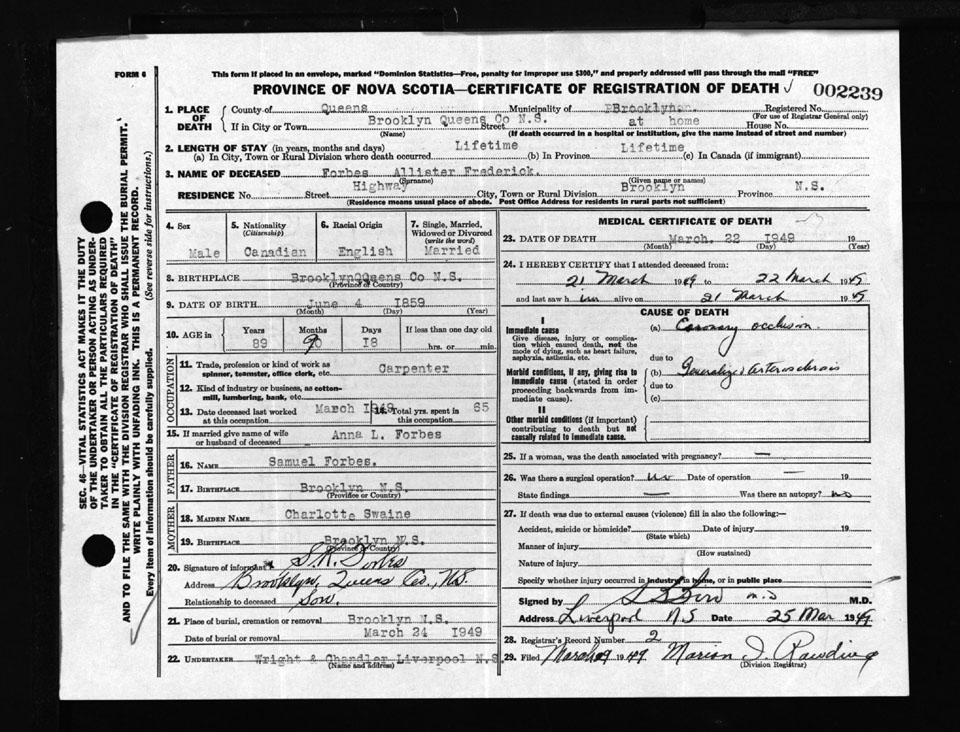 FORM 6
This form if placed in an envelope, marked "Dominion Statistics—Free, penalty for improper use $300," and properly addressed will pass through the mail "FREE"
PROVINCE OF NOVA SCOTIA—CERTIFICATE OF REGISTRATION OF DEATH
002239
1. PLACE OF DEATH
County of Queens Municipality of Brooklyn Registered No.
(For use of Registrar General only)
If in City or Town Brooklyn Queens Co N.S. Street at home House No.
(Name) (If death occurred in a hospital or institution, give the name instead of street and number)
2. LENGTH OF STAY (in years, months and days)
(a) In City, Town or Rural Division where death occurred Lifetime (b) In Province Lifetime (c) In Canada (if immigrant)
3. NAME OF DECEASED Forbes Allister Frederick.
(Surname) (Given name or names)
RESIDENCE No. Street Highway City, Town or Rural Division Brooklyn Province N.S.
(Residence means usual place of abode. Post Office Address for residents in rural parts not sufficient)
4. Sex
Male
5. Nationality
(Citizenship)
Canadian
6. Racial Origin
English
7. Single, Married, Widowed or Divorced
(write the word)
Married
8. BIRTHPLACE Brooklyn QUeens Co N.S.
(Province or Country)
9. DATE OF BIRTH June 4 1859
(Month) (Day) (Year)
10. AGE in
Years Months Days If less than one day old
89 9 18 hrs. or min.
OCCUPATION
11. Trade, profession or kind of work as spinner, teamster, office clerk, etc. Carpenter
12. Kind of industry or business, as cotton-mill, lumbering, bank, etc.
13. Date deceased last worked at this occupation March 1949 14. Total yrs. spent in this occupation 65
15. If married give name of wife or husband of deceased Anna L. Forbes
FATHER
16. NAME Samuel Forbes.
17. BIRTHPLACE Brooklyn N.S.
(Province or Country)
MOTHER
18. MAIDEN NAME Charlotte Swaine
19. BIRTHPLACE Brooklyn N.S.
(Province or Country)
20. Signature of informant S.R. Forbes
Address Brooklyn, Queens Co, N.S.
Relationship to deceased Son.
21. Place of burial, cremation or removal Brooklyn N.S.
Date of burial or removal March 24 1949
22. UNDERTAKER Wright & Chandler Liverpool N.S.
(Name and address)
MEDICAL CERTIFICATE OF DEATH
23. DATE OF DEATH March. 22 1949 19
(Month) (Day) (Year)
24. I HEREBY CERTIFY that I attended deceased from:
21 March 1949 to 22 March 1949
and last saw him alive on 21 March 1949
CAUSE OF DEATH
I
Immediate cause
Give disease, injury or complication which caused death, not the mode of dying, such as heart failure, asphyxia, asthenia, etc.
(a) Coronary occlusion
due to
Morbid conditions, if any, giving rise to immediate cause (stated in order proceeding backwards from immediate cause).
(b) Generalized Arteriosclerosis
due to
(c)
II
Other morbid conditions (if important) contributing to death but not causally related to immediate cause.
25. If a woman, was the death associated with pregnancy? —
26. Was there a surgical operation? no Date of operation — 19
State findings — Was there an autopsy? no
27. If death was due to external causes (violence) fill in also the following:—
Accident, suicide or homicide? Date of injury 19
(State which)
Manner of injury
(How sustained)
Nature of injury
Specify whether injury occurred in industry, in home, or in public place
Signed by M.D. M.D.
Address Liverpool N.S Date 25 Mar 1949
28. Registrar's Record Number 2
29. Filed March 1949 Marion I. Rawding
(Division Registrar)
SEC. 46—VITAL STATISTICS ACT MAKES IT THE DUTY
OF THE UNDERTAKER OR PERSON ACTING AS UNDER-
TAKER TO OBTAIN ALL THE PARTICULARS REQUIRED
IN THE "CERTIFICATE OF REGISTRATION OF DEATH"
AND TO FILE THE SAME WITH THE DIVISION REGISTRAR WHO SHALL ISSUE THE BURIAL PERMIT.
WRITE PLAINLY WITH UNFADING INK. THIS IS A PERMANENT RECORD.
Every item of information should be carefully supplied. (See reverse side for instructions.)